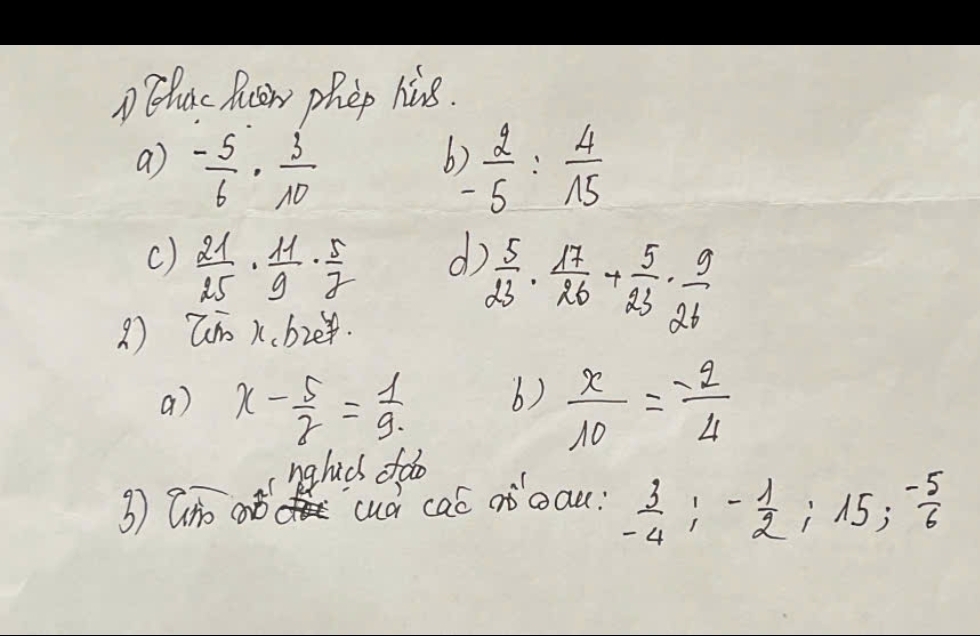 1) Thực hiện phép tính.
a) -5/6 . 3/10 b) 2/-5 : 4/15
c) 21/25 . 11/9 . 5/7 d) 5/23 . 17/26 + 5/23 . 9/26
2) Tìm x, biết.
a) x - 5/7 = 1/9. b) x/10 = -2/4
3) Tìm số nghịch đảo của các số sau: 3/-4 ; -1/2 ; 15 ; -5/6